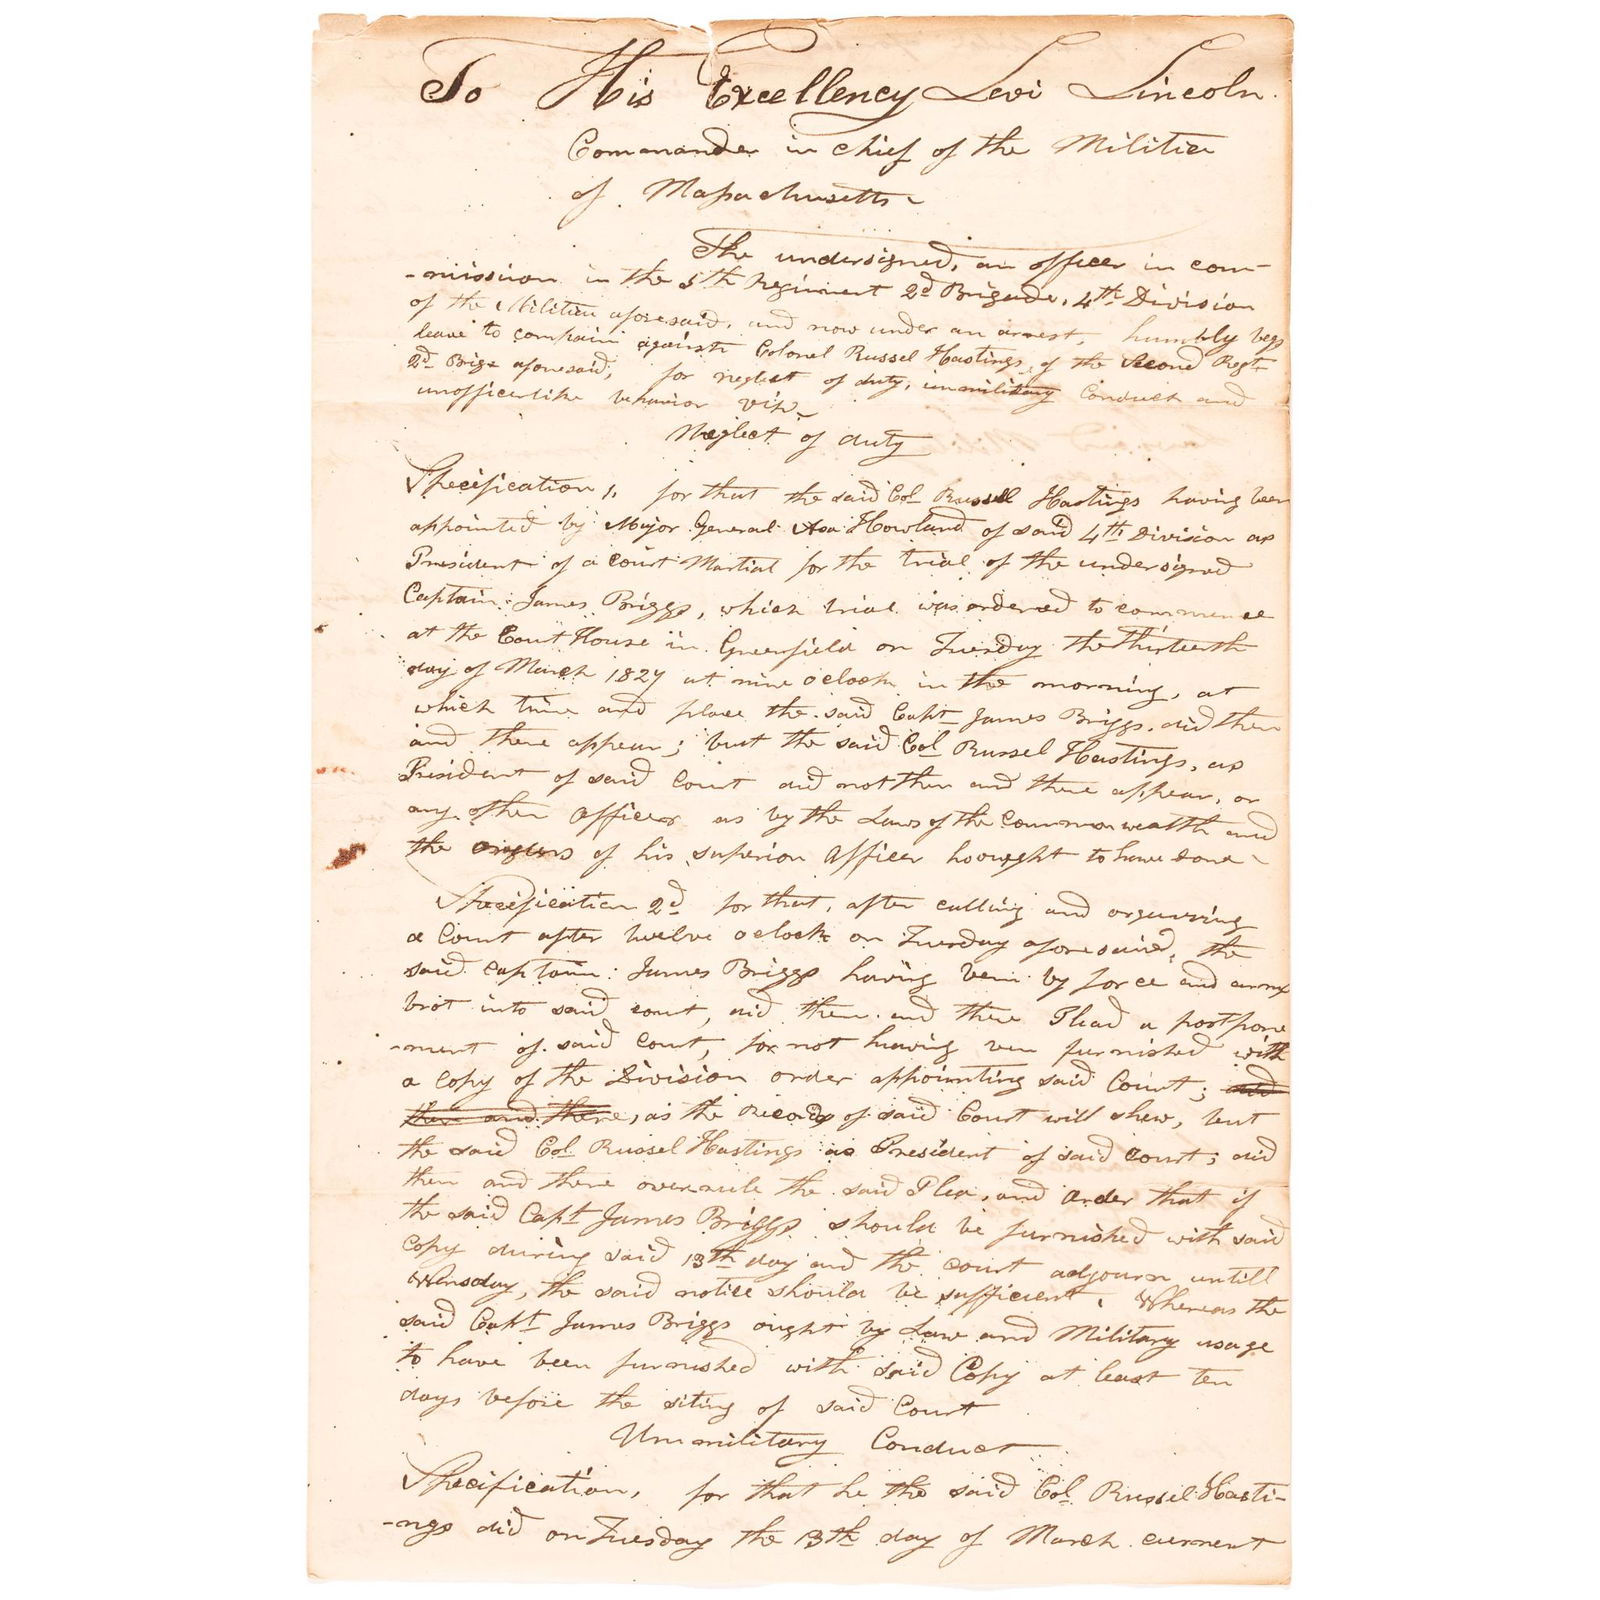 To His Excellency Levi Lincoln.
Commander in chief of the Militia
of Massachusetts
The undersigned, an officer in com-
-mission in the 5th Regiment 2d Brigade, 4th Division
of the Militia aforesaid, and now under an arrest, humbly begs
leave to complain against Colonel Russel Hastings, of the Second Regt
2d Brige aforesaid, for neglect of duty, unmilitary Conduct and
unofficerlike behavior viz.
Neglect of duty
Specification 1, for that the said Col Russell Hastings having been
appointed by Major General Asa Howland of said 4th Division as
President of a Court Martial for the trial of the undersigned
Captain James Briggs, which trial was ordered to commence
at the Court House in Greenfield on Tuesday the Thirteenth
day of March 1827 at nine oclock in the morning, at
which time and place the said Capt James Briggs, did then
and there appear; but the said Col Russel Hastings, as
President of said Court did not then and there appear, or
any other officer as by the Laws of the Commonwealth and
the orders of his superior officer he ought to have done
Specification 2d for that, after calling and organising
a Court after twelve oclock on Tuesday aforesaid, the
said captain: James Briggs having been by force and arms
brot into said court, did then and there Plead a postpone
-ment of said Court, for not having ben furnished with
a copy of the Division order appointing said Court; and
then and there, as the Records of said Court will shew, but
the said Col Russel Hastings as President of said Court; did
then and there overrule the said Plea, and order that if
the said Capt James Briggs should be furnished with said
Copy during said 13th day and the court adjourn untill
Wensday, the said notice should be sufficient. Whereas the
said Capt James Briggs ought by Law and Military usage
to have been furnished with said Copy at least ten
days before the siting of said Court
Unmilitary Conduct
Specification, for that he the said Col Russel Hasti-
-ngs did on Tuesday the 13th day of March current